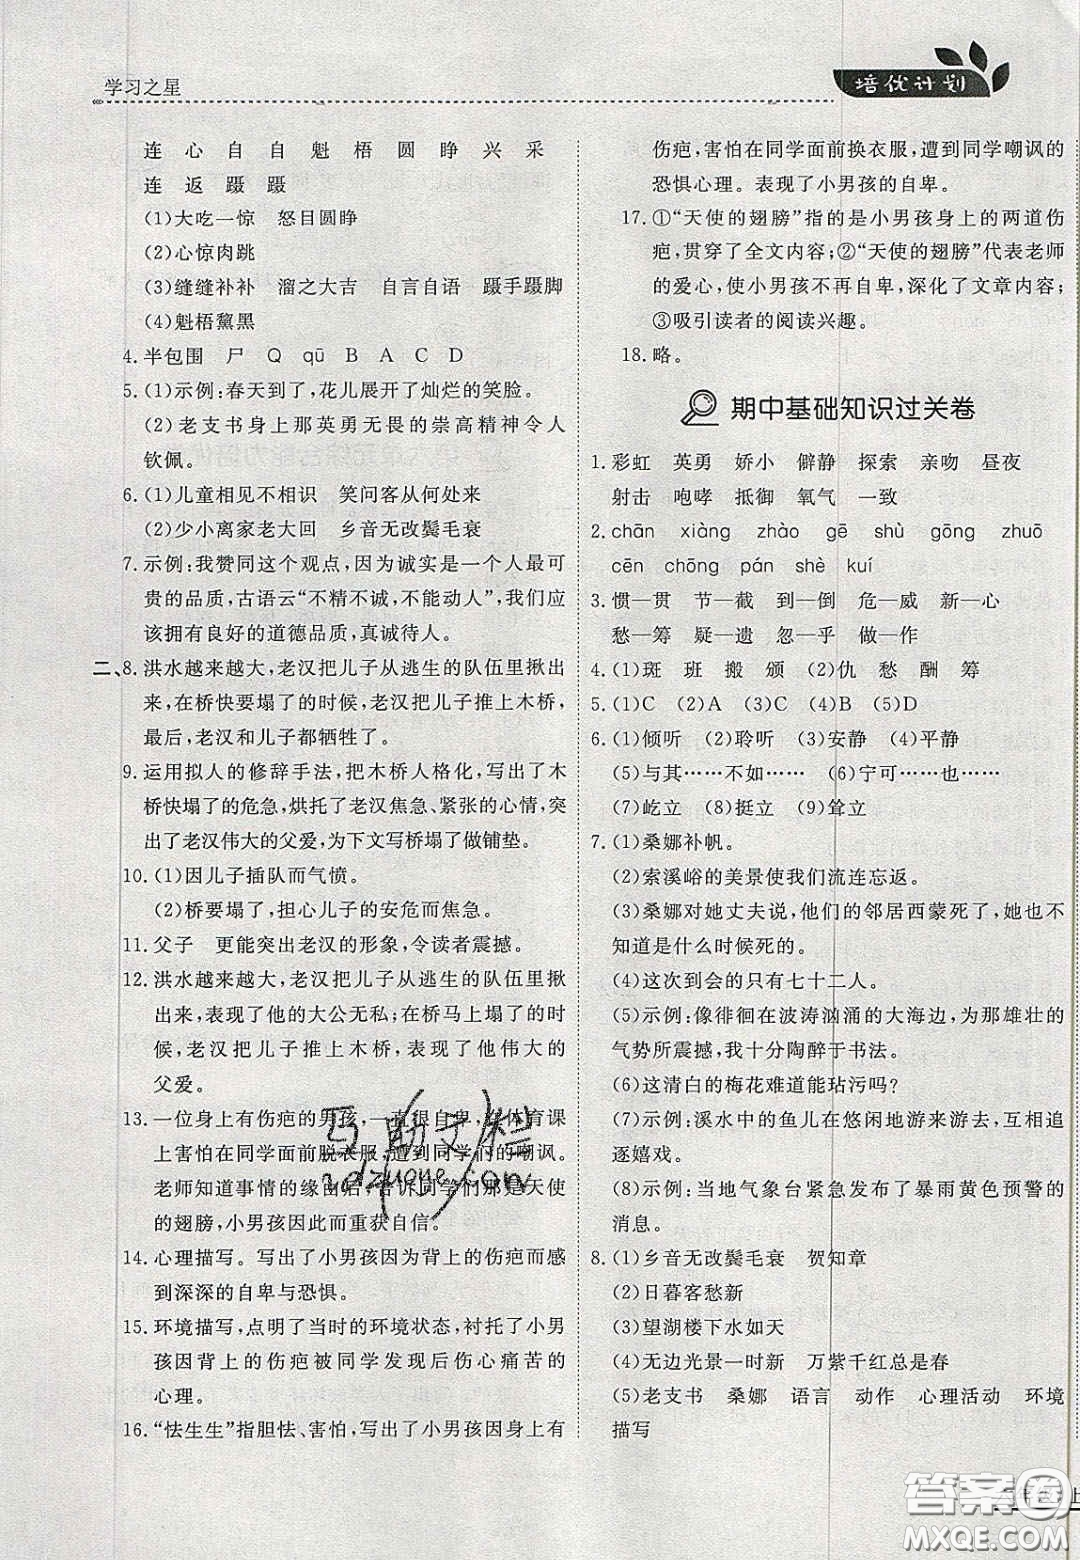 学习之星
培优计划
连 心 自 自 魁 梧 圆 睁 兴 采
连 返 蹑 蹑
(1)大吃一惊 怒目圆睁
(2)心惊肉跳
(3)缝缝补补 溜之大吉 自言自语 蹑手蹑脚
(4)魁梧黧黑
4. 半包围 尸 Q qū B A C D
5. (1)示例:春天到了,花儿展开了灿烂的笑脸。
(2)老支书身上那英勇无畏的崇高精神令人
钦佩。
6. (1)儿童相见不相识 笑问客从何处来
(2)少小离家老大回 乡音无改鬓毛衰
7. 示例:我赞同这个观点,因为诚实是一个人最可
贵的品质,古语云“不精不诚,不能动人”,我们应
该拥有良好的道德品质,真诚待人。
二、8. 洪水越来越大,老汉把儿子从逃生的队伍里揪出
来,在桥快要塌了的时候,老汉把儿子推上木桥,
最后,老汉和儿子都牺牲了。
9. 运用拟人的修辞手法,把木桥人格化,写出了木
桥快塌了的危急,烘托了老汉焦急、紧张的心情,突
出了老汉伟大的父爱,为下文写桥塌了做铺垫。
10. (1)因儿子插队而气愤。
(2)桥要塌了,担心儿子的安危而焦急。
11. 父子 更能突出老汉的形象,令读者震撼。
12. 洪水越来越大,老汉把儿子从逃生的队伍里揪
出来,表现了他的大公无私;在桥马上要塌的时
候,老汉把儿子推上木桥,表现了他伟大的
父爱。
13. 一位身上有伤疤的男孩,一直很自卑,体育课
上害怕在同学面前脱衣服,遭到同学们的嘲讽。
老师知道事情的缘由后,告诉同学们那是天使
的翅膀,小男孩因此而重获自信。
14. 心理描写。写出了小男孩因为背上的伤疤而感
到深深的自卑与恐惧。
15. 环境描写,点明了当时的环境状态,衬托了小男
孩因背上的伤疤被同学发现后伤心痛苦的
心理。
16. “怯生生”指胆怯、害怕,写出了小男孩因身上有
伤疤,害怕在同学面前换衣服,遭到同学嘲讽的
恐惧心理。表现了小男孩的自卑。
17. ①“天使的翅膀”指的是小男孩身上的两道伤
疤,贯穿了全文内容;②“天使的翅膀”代表老师
的爱心,使小男孩不再自卑,深化了文章内容;
③吸引读者的阅读兴趣。
18. 略。
期中基础知识过关卷
1. 彩虹 英勇 娇小 僻静 探索 亲吻 昼夜
射击 咆哮 抵御 氧气 一致
2. chān xiàng zhào gē shù gōng zhuō
cēn chōng pán shè kuí
3. 惯—贯 节—截 到—倒 危—威 新—心
愁—筹 疑—遗 忽—乎 做—作
4. (1)斑 班 搬 颁 (2)仇 愁 酬 筹
5. (1)C (2)A (3)C (4)B (5)D
6. (1)倾听 (2)聆听 (3)安静 (4)平静
(5)与其……不如…… (6)宁可……也……
(7)屹立 (8)挺立 (9)耸立
7. (1)桑娜补帆。
(2)索溪峪的美景使我们流连忘返。
(3)桑娜对她丈夫说,他们的邻居西蒙死了,她也不
知道是什么时候死的。
(4)这次到会的只有七十二人。
(5)示例:像徘徊在波涛汹涌的大海边,为那雄壮的
气势所震撼,我十分陶醉于书法。
(6)这清白的梅花难道能玷污吗?
(7)示例:溪水中的鱼儿在悠闲地游来游去,互相追
逐嬉戏。
(8)示例:当地气象台紧急发布了暴雨黄色预警的
消息。
8. (1)乡音无改鬓毛衰 贺知章
(2)日暮客愁新
(3)望湖楼下水如天
(4)无边光景一时新 万紫千红总是春
(5)老支书 桑娜 语言 动作 心理活动 环境
描写
答案圈
MXQE.COM
上